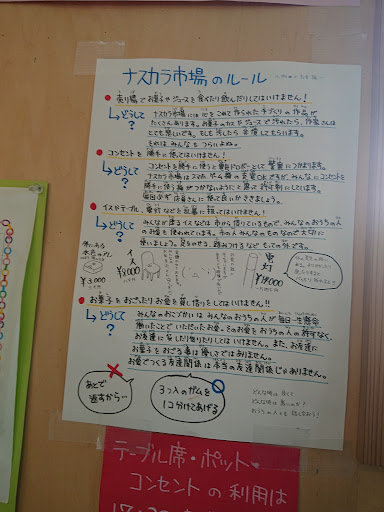 ナスカラ市場のルール
売り場でお菓子やジュースを食べたり飲んだりしてはいけません!
どうして?
ナスカラ市場には心をこめて作られた手づくりの作品が
たくさんあります。お菓子のカスやジュースで汚れたら、作家さんは
とても悲しいです。もし汚したら弁償してもらいます。
それは、みんなもつらいよね。
コンセントを勝手に使ってはいけません!
どうして?
コンセントを勝手に使うと電気ドロボーとして警察につかまります。
ナスカラ市場はスマホ、ゲーム機の充電OKですが、みんなにコンセントを
勝手に使う癖がつかないようにと思って許可制にしています。
毎回必ず店員さんに使って良いかききましょう。
イスやテーブル、電灯などを乱暴に扱ってはいけません!
どうして?
みんなが座るイスなどは市から借りているもので、みんなのおうちの人
のお金を使われています。市の人みんなのものなので大切に
使いましょう。足をのせる、踏みつけるなどもっての外です。
外にある
水色のイス
¥3000
イス
¥8000
電灯
¥19000
お菓子をおごったりお金を貸し借りをしてはいけません!!
どうして?
みんなのおこづかいはみんなのおうちの人が毎日一生懸命
働いたことでいただいたお金。そのお金をおうちの人の許すなく、
お友達に貸したり借りたりしてはいけません。また、お友達に
お菓子をおごる事は優しさではありません。
お金でつくる友達関係は本当の友達関係じゃありません。
あとで
返すから…
3つ入のガムを
1コ分けてあげる
どんな時は良くて
どんな時は悪いのか?
おうちの人とも話しあおう!
テーブル席・ポット・
コンセントの利用は